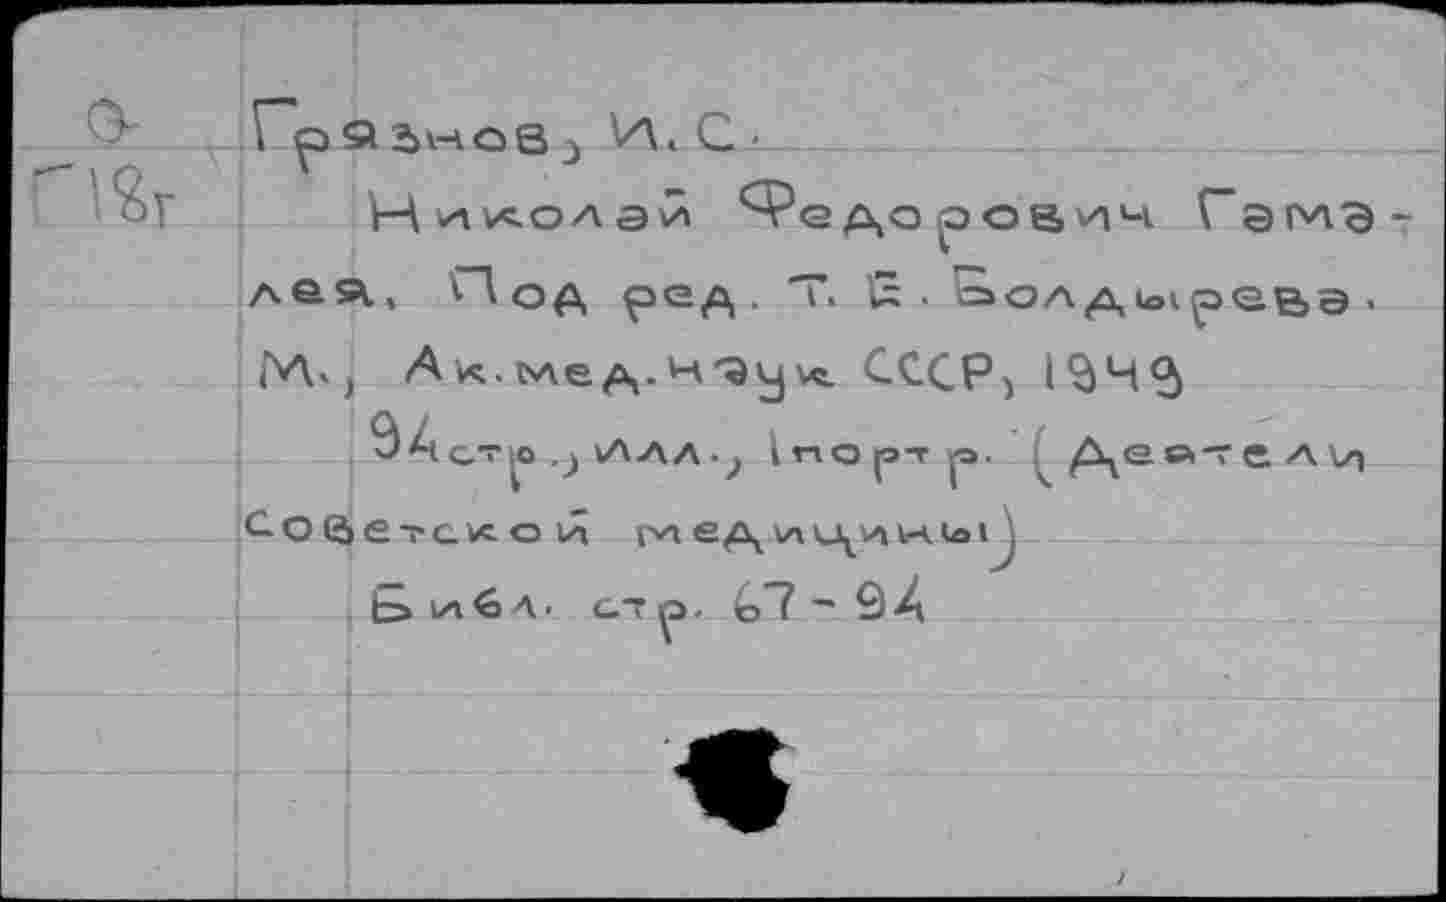 Грязнов, И. С.
Г18г
Николай Федорович Гама-
лея, Под ред. Т. Е. Болдырева.
М., Ак. мед. наук СССР, 1949
94 стр., илл., 1 портр. (Деятели
Советской медицины)
Библ. стр. 67-94